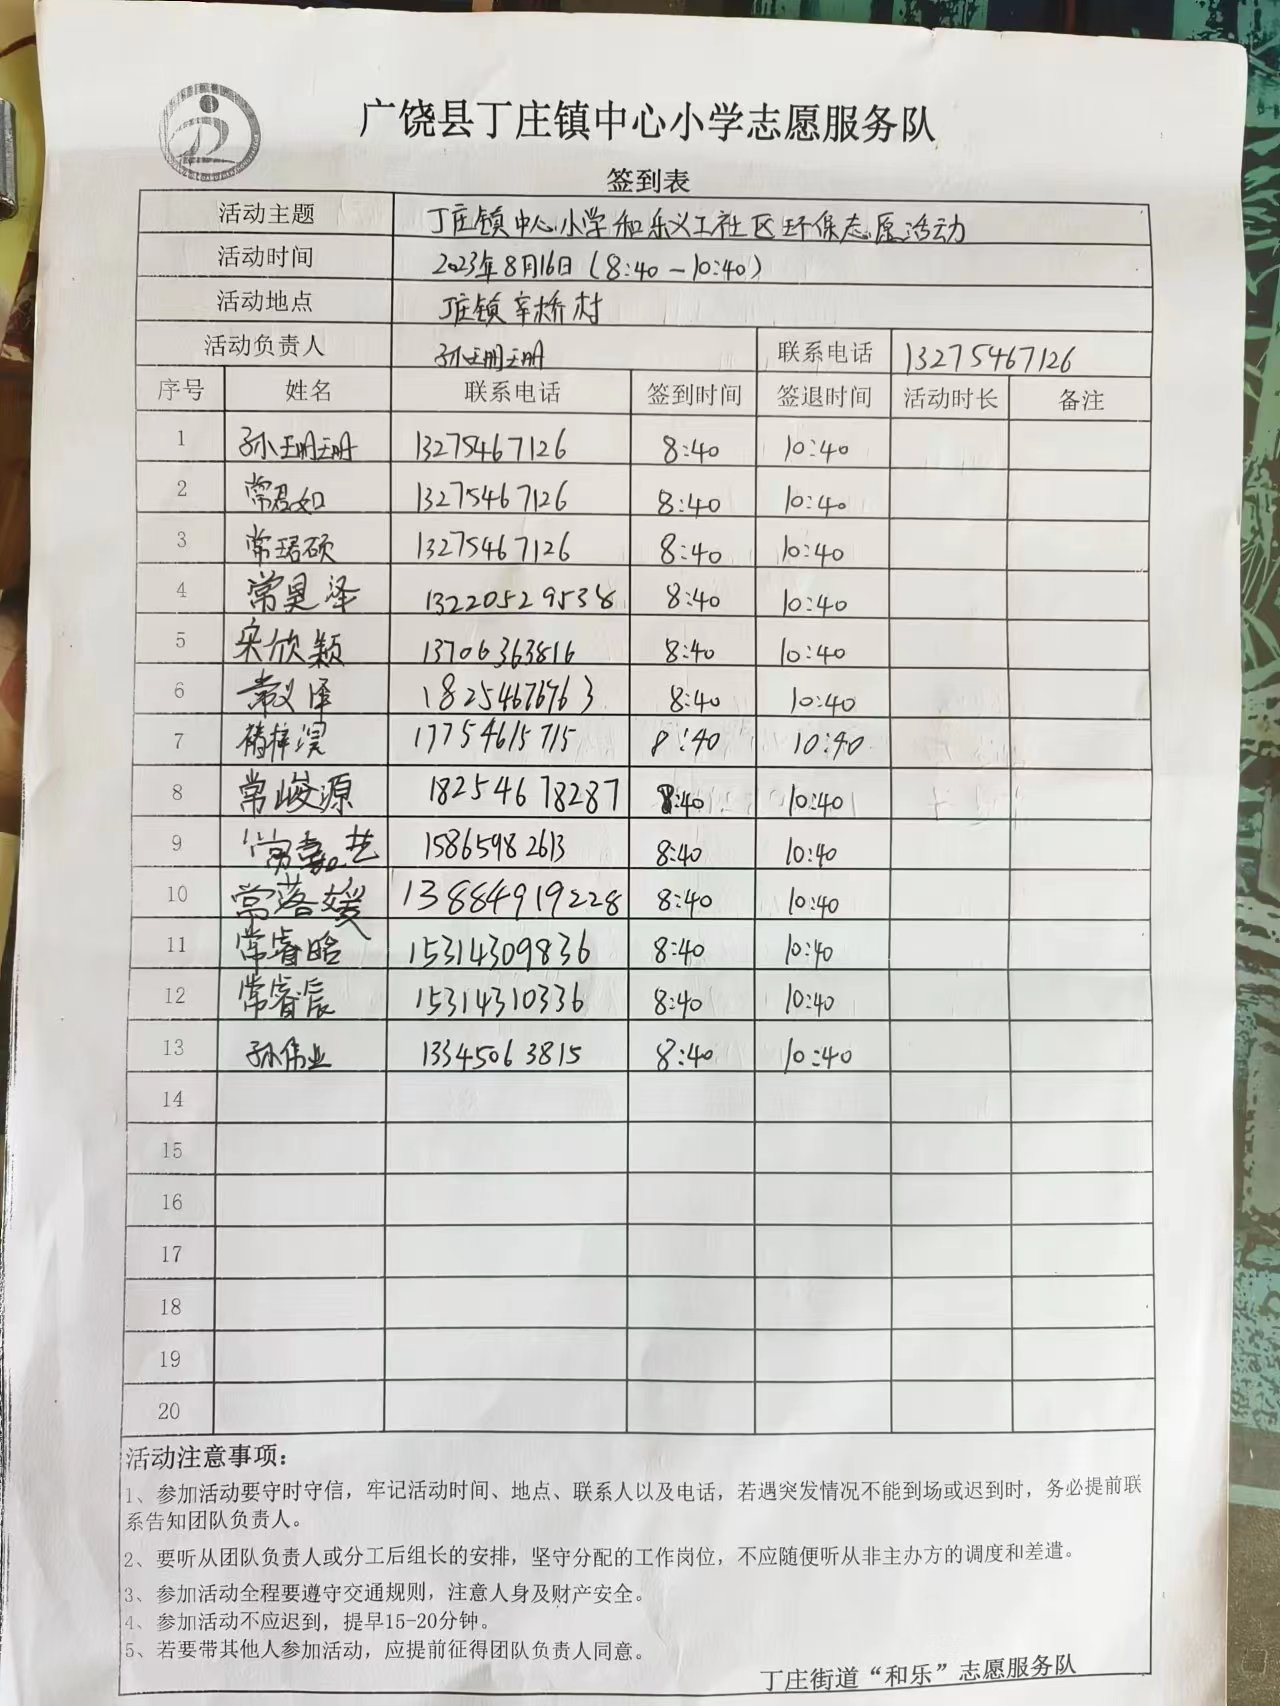 广饶县丁庄镇中心小学志愿服务队
签到表
活动主题 丁庄镇中心小学和乐义工社区环保志愿活动
活动时间 2023年8月16日(8:40-10:40)
活动地点 丁庄镇辛桥村
活动负责人 孙珊珊 联系电话 13275467126
序号 姓名 联系电话 签到时间 签退时间 活动时长 备注
1 孙珊珊 13275467126 8:40 10:40
2 常君如 13275467126 8:40 10:40
3 常珺硕 13275467126 8:40 10:40
4 常昊泽 13220529538 8:40 10:40
5 宋欣颖 13706363816 8:40 10:40
6 常义泽 18254676763 8:40 10:40
7 梓淏 17754615715 8:40 10:40
8 常峻源 18254678287 8:40 10:40
9 常嘉艺 15865982613 8:40 10:40
10 常落媛 13884919228 8:40 10:40
11 常睿晗 15314309836 8:40 10:40
12 常睿辰 15314310336 8:40 10:40
13 孙伟业 13345063815 8:40 10:40
14
15
16
17
18
19
20
活动注意事项:
1、参加活动要守时守信，牢记活动时间、地点、联系人以及电话，若遇突发情况不能到场或迟到时，务必提前联
系告知团队负责人。
2、要听从团队负责人或分工后组长的安排，坚守分配的工作岗位，不应随便听从非主办方的调度和差遣。
3、参加活动全程要遵守交通规则，注意人身及财产安全。
4、参加活动不应迟到，提早15-20分钟。
5、若要带其他人参加活动，应提前征得团队负责人同意。
丁庄街道“和乐”志愿服务队